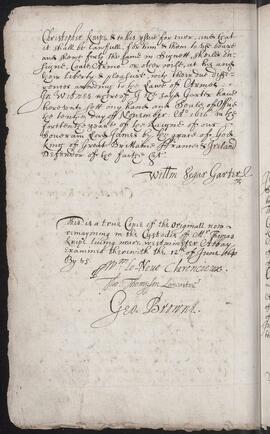 Christofer Knipe & to his yssue for euer, and that
it shall be lawfull for him & them to use beare
and shew forth the same in Signett, Sheild, En-
signe, Coate Armor or otherwise, at his and
their liberty & pleasure, with their due diffe-
rences according to the Lawe of Armes
In Witnes whereof I the said Garter haue
herevnto sett my hand and Seale of Office
the tenth day of November Ao 1616 in the
fourteenth yeare of the Raigne of our
Soueraine Lord James by the grace of God
King of Great Brittaine ffrance & Ireland
Defendor of the faith &c
Willm Segar Garter
This is a true Copie of the Originall now
remayning in the Custodie of Mr Thomas
Knipe liuing neere westminster Abbay
examined therewith the 12th of June
By vs
Wm le Neue Clarenceux.
Tho: Thompson Lancaster
Geo. Browne.